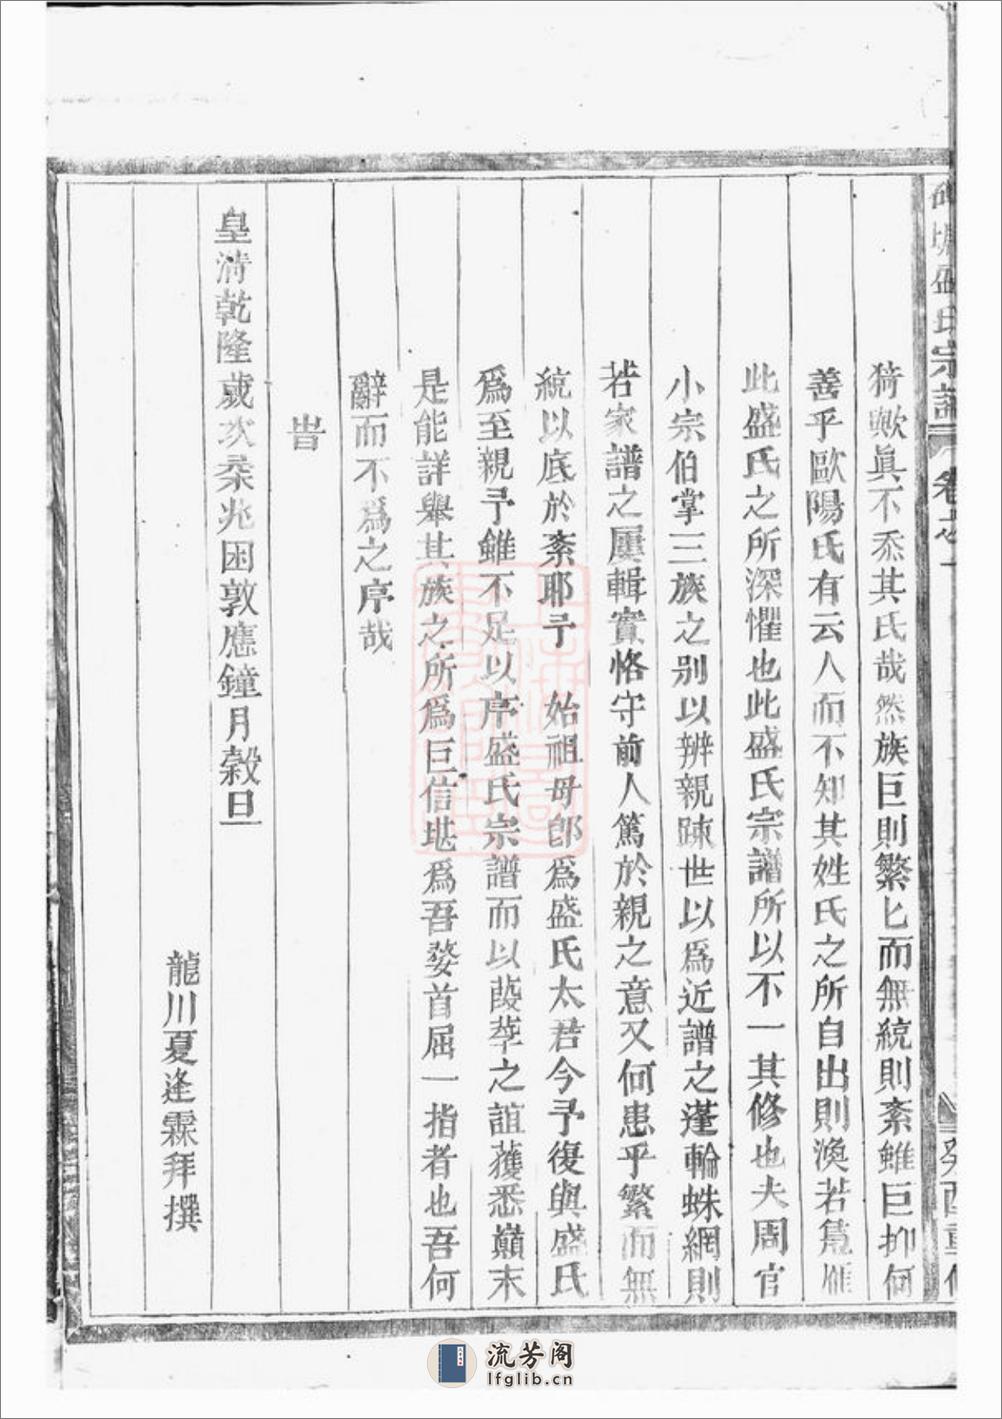 盛氏宗譜 卷之一
猗歟眞不忝其氏哉然族巨則繁匕而無統則紊雖巨抑何
善乎歐陽氏有云人而不知其姓氏之所自出則渙若鳧雁
此盛氏之所深懼也此盛氏宗譜所以不一其修也夫周官
小宗伯掌三族之別以辨親踈世以爲近譜之蓬輪蛛網則
若家譜之屢輯實恪守前人篤於親之意又何患乎繁而無
統以底於紊耶予 始祖母郎爲盛氏太君今予復與盛氏
爲至親予雖不足以序盛氏宗譜而以葭莩之誼獲悉巔末
是能詳舉其族之所爲巨信堪爲吾婺首屈一指者也吾何
辭而不爲之序哉
旹
皇清乾隆歲次柔兆困敦應鐘月穀旦
龍川夏逢霖拜撰
流芳阁
lfglib.cn